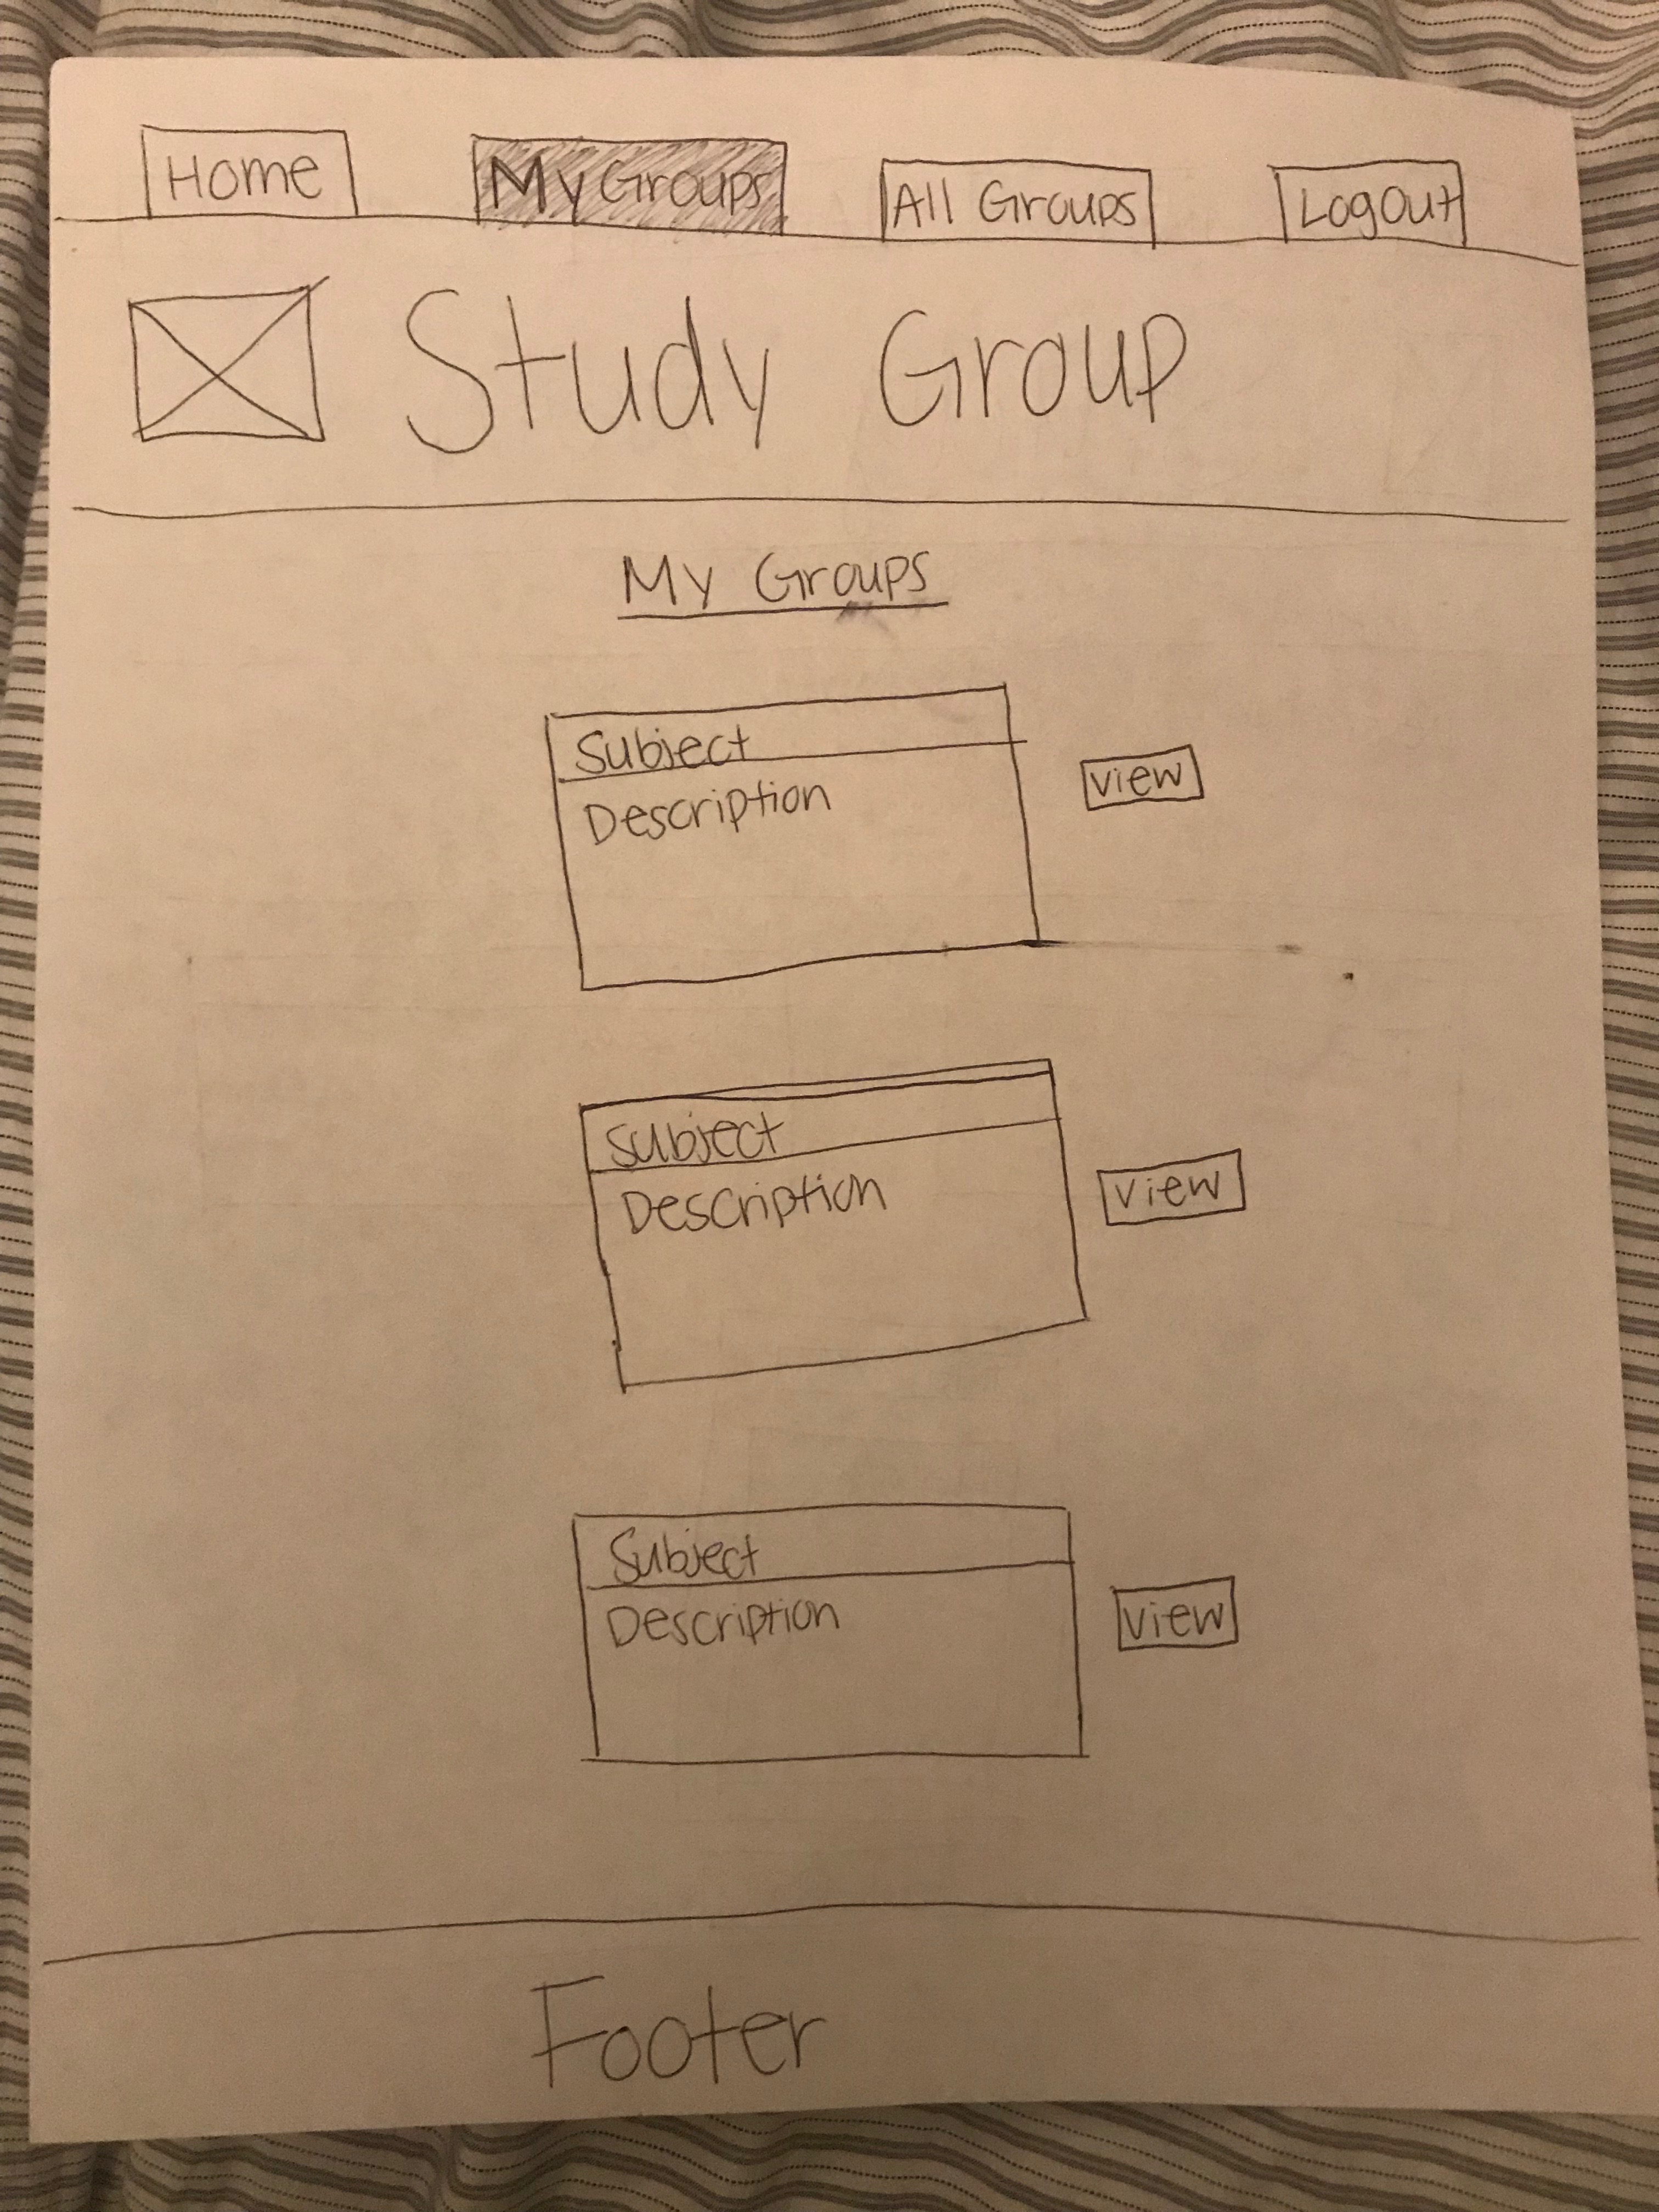 Home My Groups All Groups Logout
Study Group
My Groups
Subject
Description
view
Subject
Description
view
Subject
Description
view
Footer